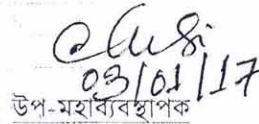 03/01/17
উপ-মহাব্যবস্থাপক